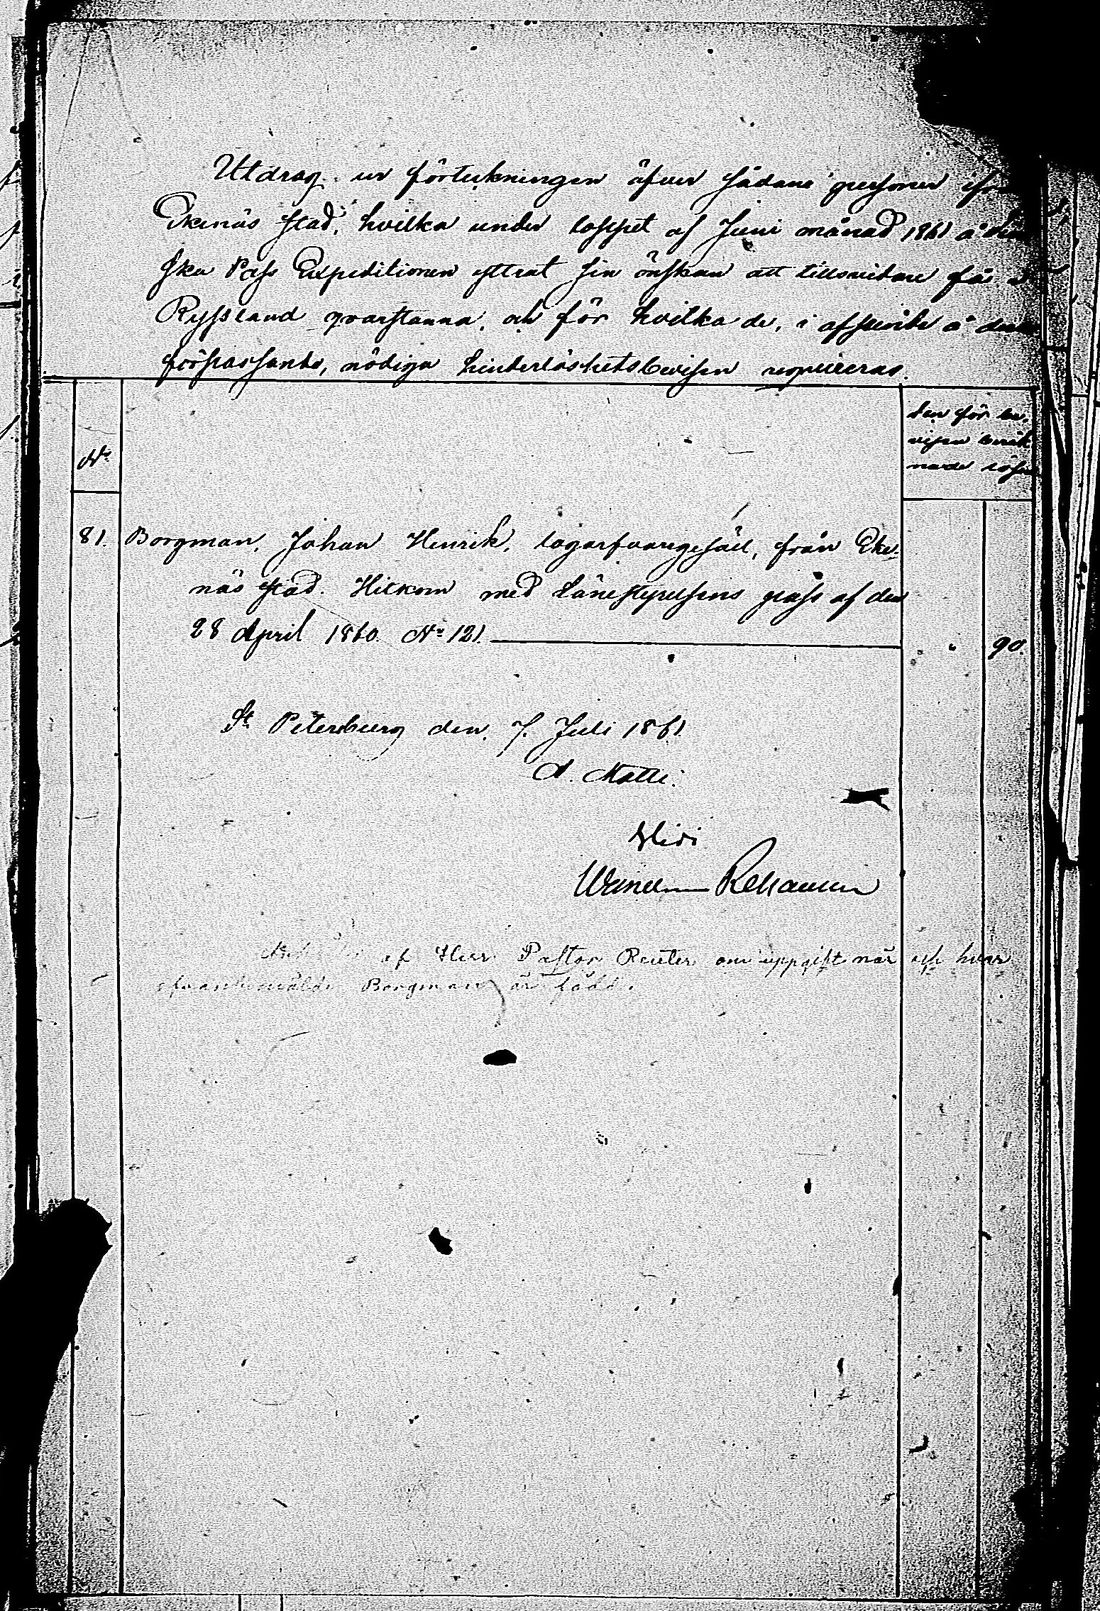 Utdrag ur förteckningen öfver sådane personer ifr
Ekenäs stad, hvilka under loppet af Juni månad 1861 å Fin
ska Pass Expeditionen yttrat sin önskan att tillsvidare få i
Ryssland qvarstanna, och för hvilka de, i afseende å deras
förpassande, nödiga hinderlöshetsbevisen requireras.
No
den för be-
visen beräk-
nade lösen
81. Borgman, Johan Henrik, logarfvaregesäll, från Eke-
näs stad. Hitkom med Länestyrelsens pass af den
28 April 1860 No 121. 90.
St Petersburg den 7 Juli 1861
A. Matti.
Vidi
af Herr Pastor Reuter om uppgift når och hvar
Borgman är född.